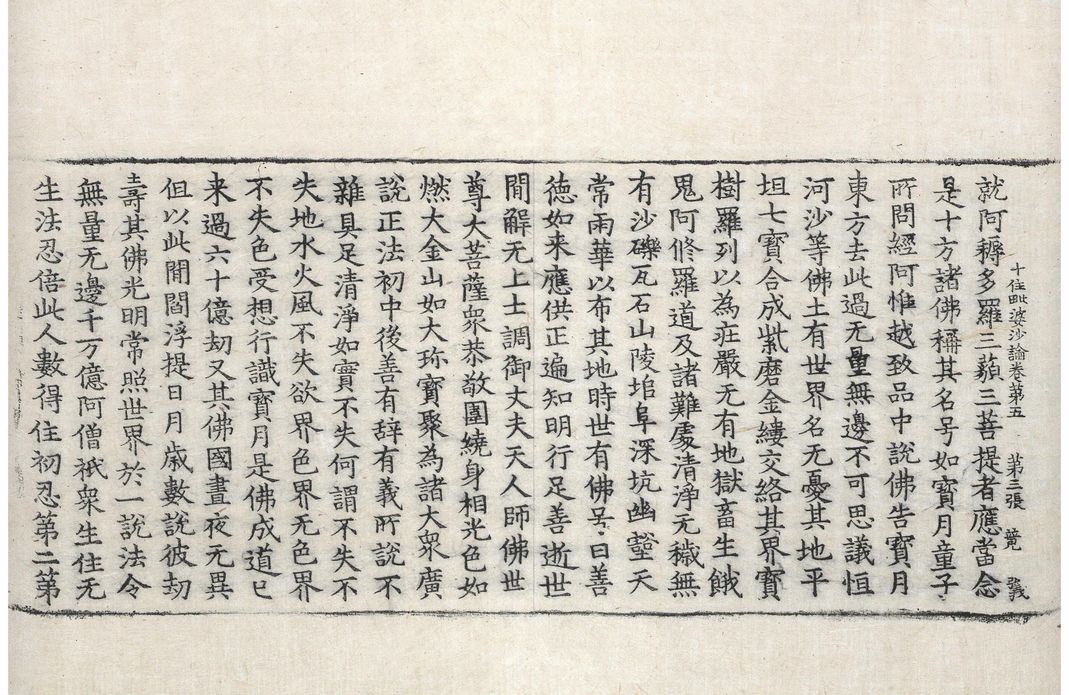 十住毗婆沙論卷第五 第三張 競
就阿耨多羅三藐三菩提者應當念
是十方諸佛稱其名号如寶月童子
所問經阿惟越致品中說佛告寶月
東方去此過无量無邊不可思議恒
河沙等佛土有世界名无憂其地平
坦七寶合成紫磨金縷交絡其界寶
樹羅列以為莊嚴无有地獄畜生餓
鬼阿修羅道及諸難處清淨无穢無
有沙礫瓦石山陵埠阜深坑幽壑天
常雨華以布其地時世有佛号曰善
德如来應供正遍知明行足善逝世
間解无上士調御丈夫天人師佛世
尊大菩薩衆恭敬圍繞身相光色如
燃大金山如大珎寶聚為諸大衆廣
說正法初中後善有辞有義所說不
雜具足清淨如實不失何謂不失不
失地水火風不失欲界色界无色界
不失色受想行識寶月是佛成道已
来過六十億劫又其佛國晝夜无異
但以此間閻浮提日月歲數說彼劫
壽其佛光明常照世界於一說法令
無量无邊千万億阿僧祇衆生住无
生法忍倍此人數得住初忍第二第